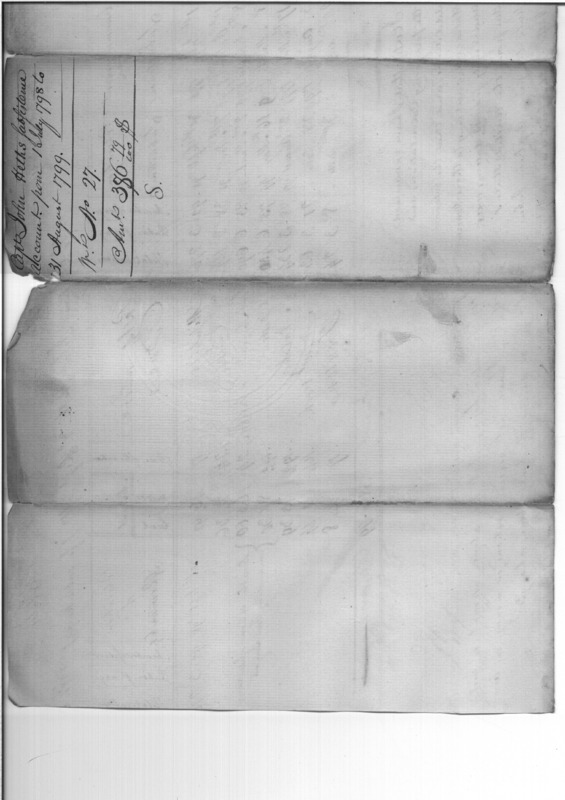 Capt John Heths subsistence
account from 1 July 1798 to
31 August 1799.
No 27.
Amt. 386 79/100 D
S.